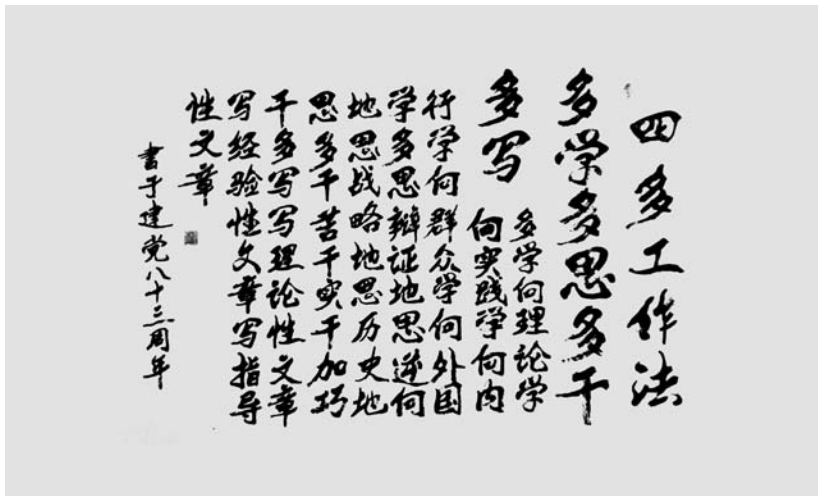 四多工作法
多学多思多干
多写
多学向理论学
向实践学向内
行学向群众学向外国
学多思辩证地思逆向
地思战略地思历史地
思多干苦干实干加巧
干多写写理论性文章
写经验性文章写指导
性文章
书于建党八十三周年